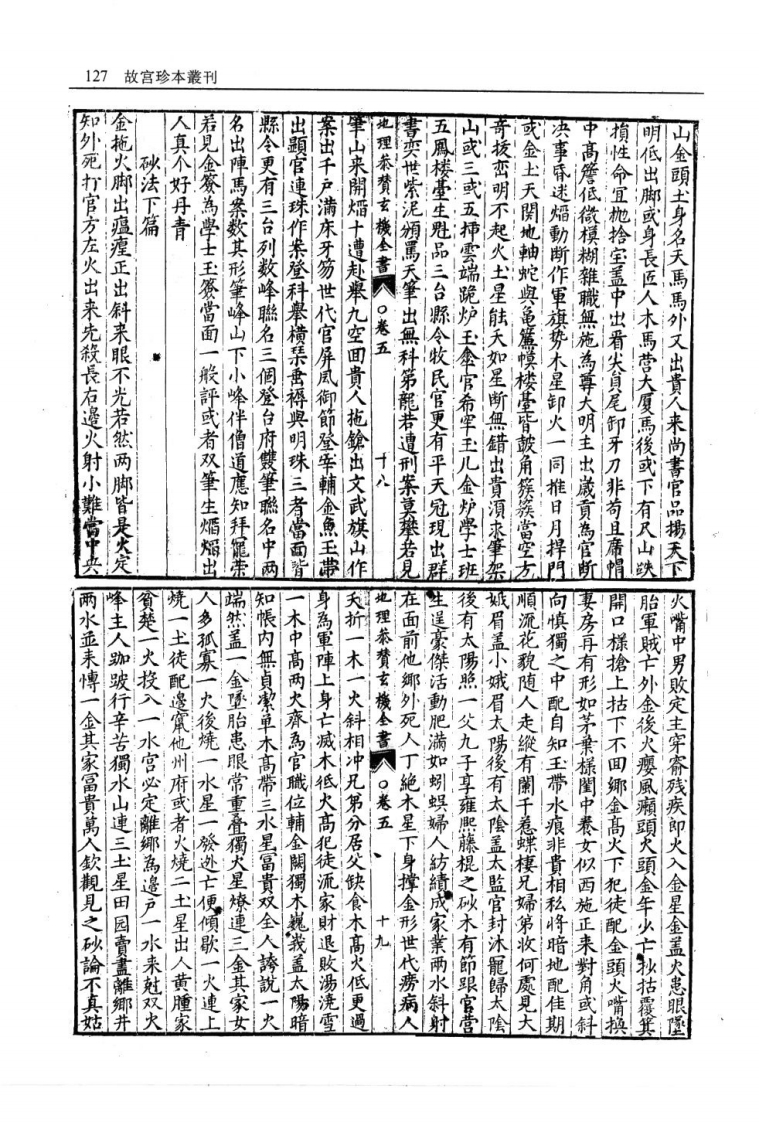 127 故宫珍本叢刊
山金頭土身名天馬馬外又出貴人来尚書官品揚天下
明低出脚或身長匠人木馬营大厦馬後或下有尺山跌
損性命宜抛捨宝盖中出看尖貞尾卸牙刀非苟且席帽
中高簷低微模糊雜職無施為尊大明主出歳貢為官断
决事昏迷熖動断作軍旗势木星卸火一同推日月捍門
或金土天関地軸蛇與龜簾幙楼臺皆皷角簇簇當空方
奇拔峦明不起火土星能夭如星断無錯出貴湏求筆架
山或三或五挿雲端跪炉玉傘官希罕玉儿金炉學士班
五鳳楼臺生魁品三台縣令牧民官更有平天冠現出群
書奕世紫泥頒罵天筆出無科第龍若遭刑案莫攀若見
地理叅賛玄機全書 ○卷五 十八
筆山来開熖十遭赴舉九空囬貴人拖鎗出文武旗山作
案出千戸滿床牙笏世代官屏風御節登宰輔金魚玉帶
出顕官連珠作案登科舉横琹曲褥與明珠三者當面皆
縣令更有三台列数峰聯名三個登台府雙筆聯名中两
名出陣馬案数其形筆峰山下小峰伴僧道應知拜寵荣
若見金簝為學士玉簝當面一般評或者双筆生熖熖出
人真个好丹青
砂法下篇
金拖火脚出瘟瘽正出斜来眼不光若然两脚皆是火定
知外死打官方左火出来先殺長右邉火射小難當中央
火嘴中男敗定主穿窬残疾即火入金星金盖火患眼墜
胎軍賊亡外金後火癭風癩頭火頭金年少亡抄估覆箕
開口樣搶上拈下不囬郷金高火下犯徒配金頭火嘴換
妻房再有形如茅葉樣閨中養女似西施正来對角或斜
向慎獨之中配自知玉帶水痕非貴相私將暗地配佳期
順流花貌随人走縱有闌干惹蝶棲兄婦弟收何處見大
娥眉盖小娥眉太陽後有太陰盖太監官封沐寵歸太陰
後有太陽照一父九子享雍熙藤棍之砂木有節跟官當
生逞豪傑活動肥滿如蚓蜈婦人紡績成家業两水斜射
在面前他郷外死人丁絶木星下身撑金形世代癆病人
地理叅賛玄機全書 ○卷五 十九
夭折一木一火斜相冲兄第分居父缺食木高火低更過
身為軍陣上身亡減木低火高犯徒流家財退敗湯澆雪
一木中高两火齊為官職位輔金闕獨木巍峩盖太陽暗
知帳内無貞潔单木高帶三水星冨貴双全人誇説一火
端然盖一金墮胎患眼常重疊獨火星燎連三金其家女
人多孤寡一火後燒一水星一發逃亡便傾歇一火連上
燒一土徒配邉窜他州府或者火燒二土星出人黄腫家
貧楚一火投入一水宫必定離郷為邉戸一水来尅双火
峰主人跏跛行辛苦獨水山連三土星田园賣盡離郷井
两水並来愽一金其家冨貴萬人欽觀見之砂論不真姑